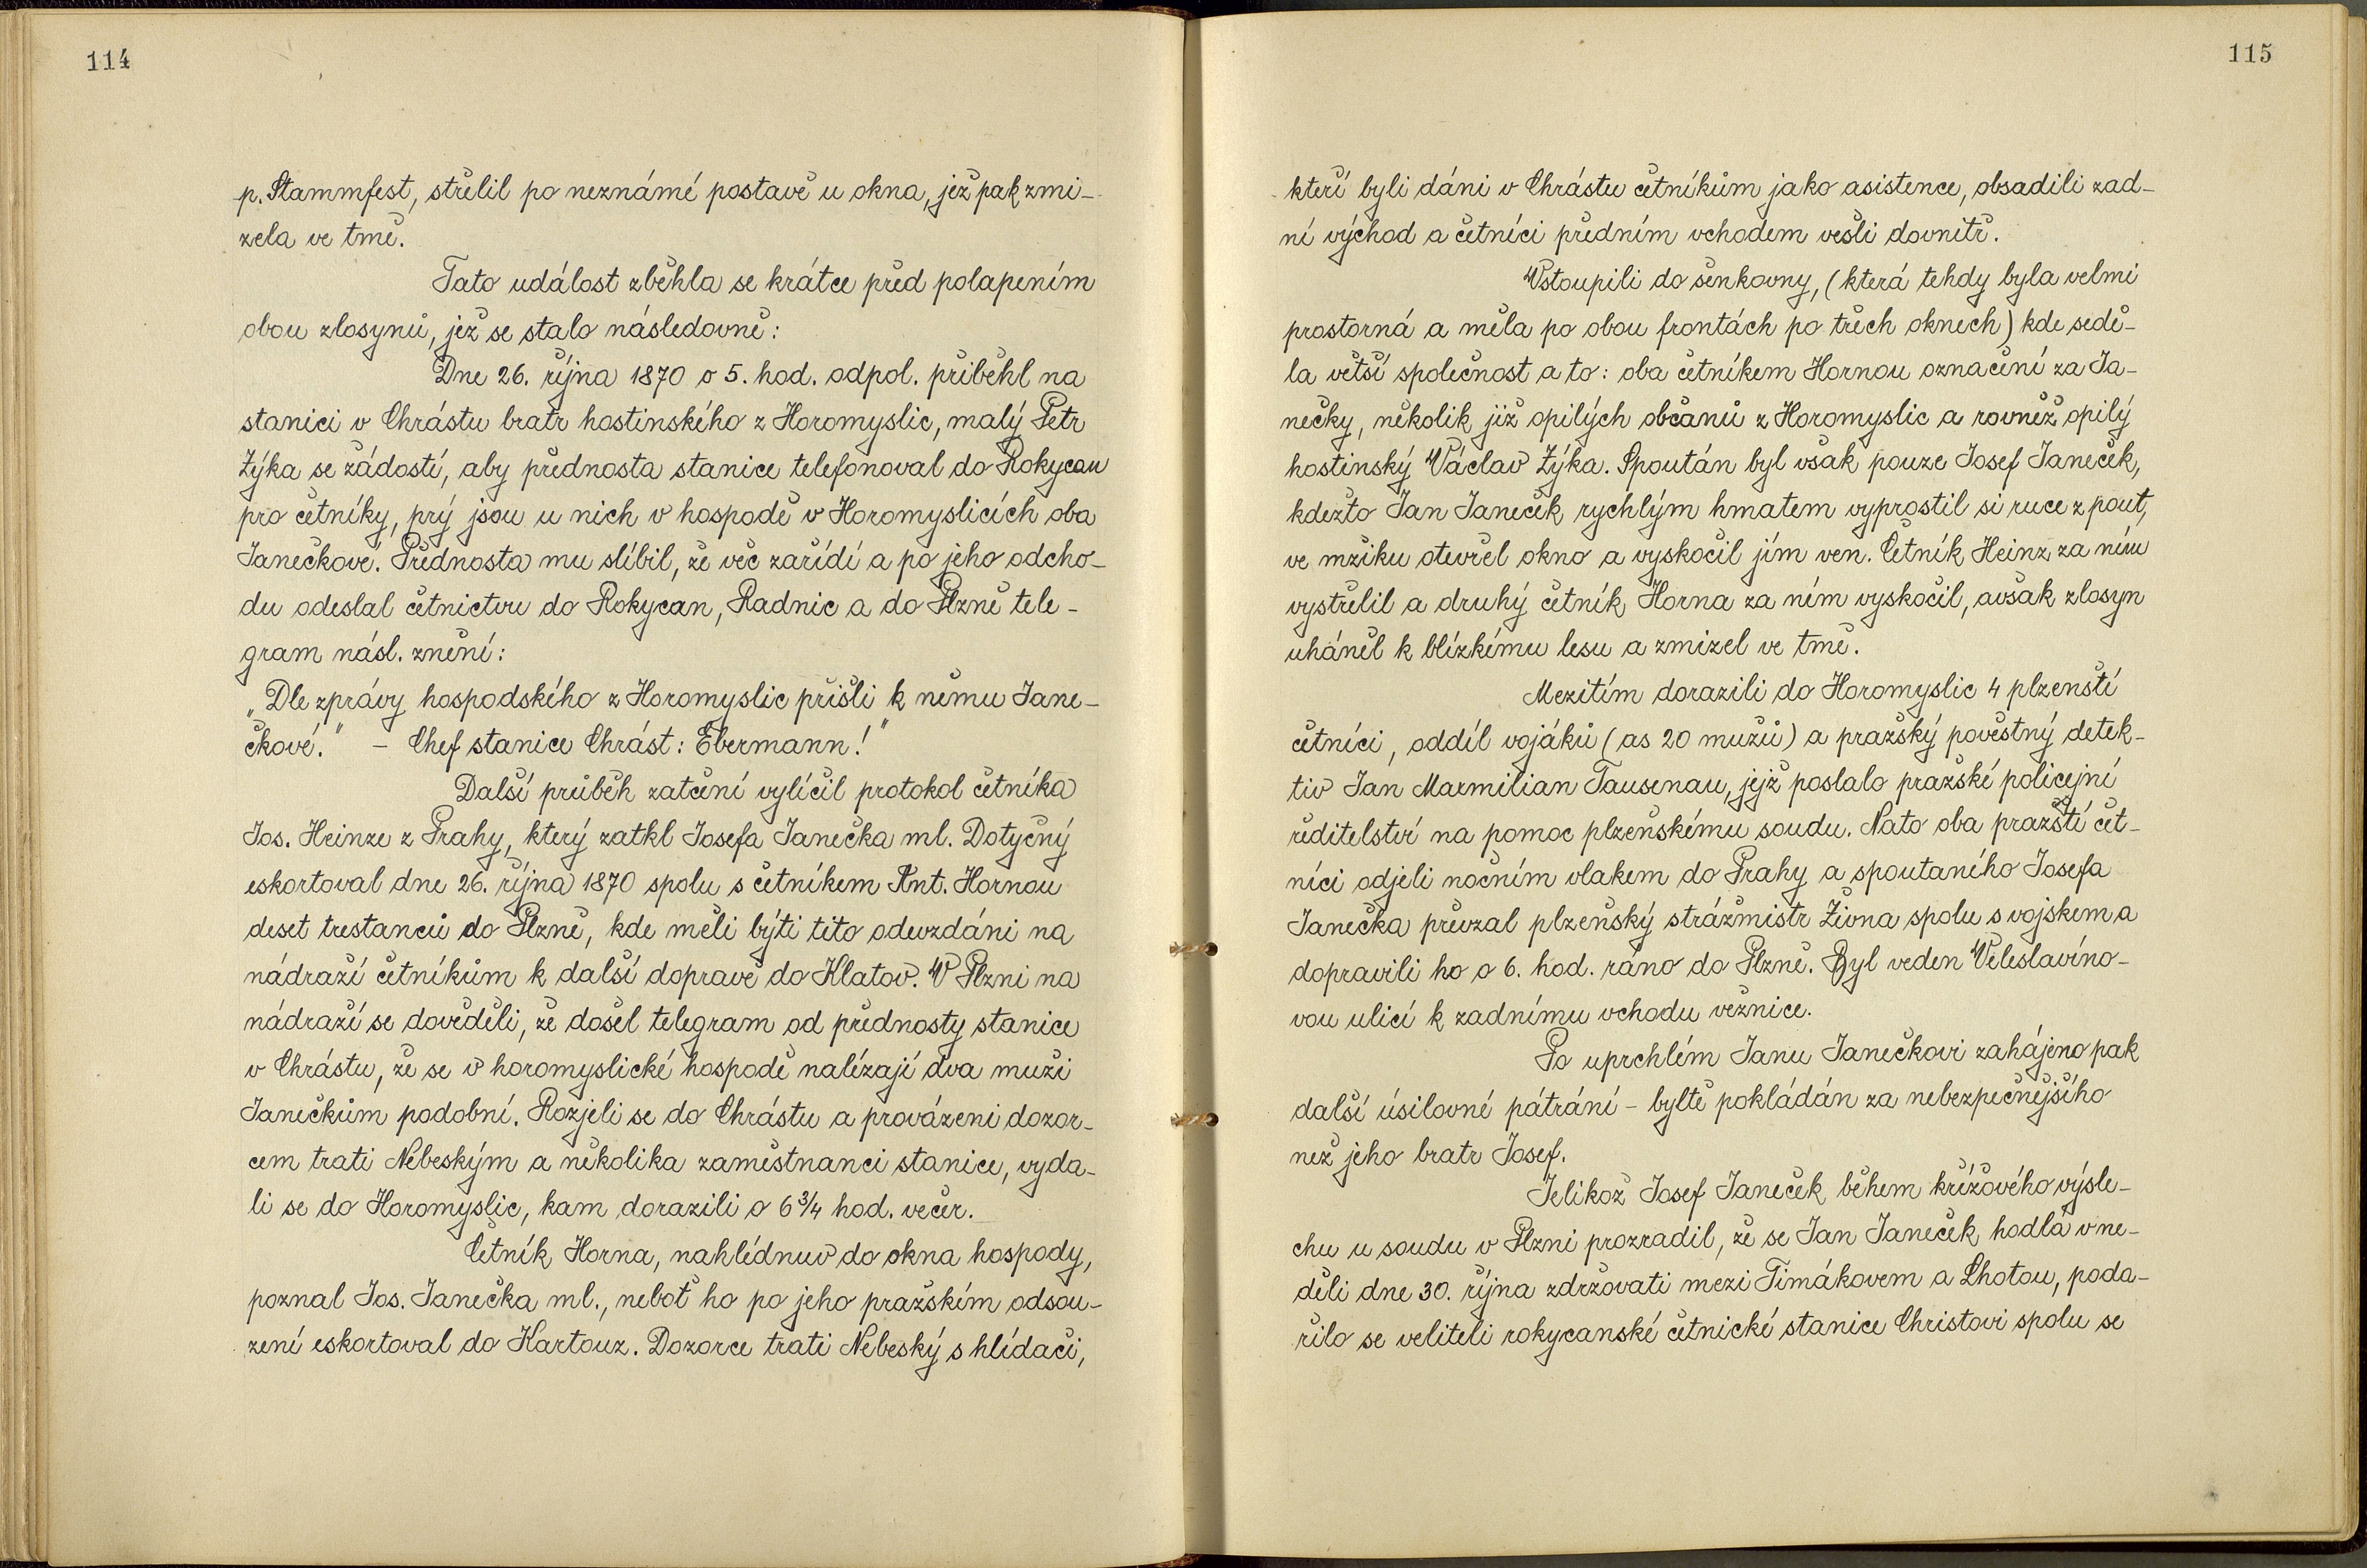 114
p. Stammfest, střelil po neznámé postavě u okna, jež pak zmi-
zela ve tmě.
Tato událost zběhla se krátce před polapením
obou zlosynů, jež se stalo následovně:
Dne 26. října 1870 o 5. hod. odpol. přiběhl na
stanici v Chrástu bratr hostinského z Horomyslic, malý Petr
Zýka se žádostí, aby přednosta stanice telefonoval do Rokycan
pro četníky, prý jsou u nich v hospodě v Horomyslicích oba
Janečkové. Přednosta mu slíbil, že věc zařídí a po jeho odcho-
du odeslal četnictvu do Rokycan, Radnic a do Plzně tele-
gram násl. znění:
„Dle zprávy hospodského z Horomyslic přišli k němu Jane-
čkové." - Chef stanice Chrást: Ebermann!"
Další průběh zatčení vylíčil protokol četníka
Jos. Heinze z Prahy, který zatkl Josefa Janečka ml. Dotyčný
eskortoval dne 26. října 1870 spolu s četníkem Ant. Hornou
deset trestanců do Plzně, kde měli býti tito odevzdáni na
nádraží četníkům k další dopravě do Klatov. V Plzni na
nádraží se dověděli, že došel telegram od přednosty stanice
v Chrástu, že se v horomyslické hospodě nalézají dva muži
Janečkům podobní. Rozjeli se do Chrástu a provázeni dozor-
cem trati Nebeským a několika zaměstnanci stanice, vyda-
li se do Horomyslic, kam dorazili o 6 3/4 hod. večer.
Četník Horna, nahlédnuv do okna hospody,
poznal Jos. Janečka ml., neboť ho po jeho pražském odsou-
zení eskortoval do Kartouz. Dozorce trati Nebeský s hlídači,
115
kteří byli dáni v Chrástu četníkům jako asistence, obsadili zad-
ní východ a četníci předním vchodem vešli dovnitř.
Vstoupili do šenkovny, (která tehdy byla velmi
prostorná a měla po obou frontách po třech oknech) kde sedě-
la větší společnost a to: oba četníkem Hornou označení za Ja-
nečky, několik již opilých občanů z Horomyslic a rovněž opilý
hostinský Václav Zýka. Spoután byl však pouze Josef Janeček,
kdežto Jan Janeček rychlým hmatem vyprostil si ruce z pout,
ve mžiku otevřel okno a vyskočil jím ven. Četník Heinz za ním
vystřelil a druhý četník Horna za ním vyskočil, avšak zlosyn
uháněl k blízkému lesu a zmizel ve tmě.
Mezitím dorazili do Horomyslic 4 plzenští
četníci, oddíl vojáků (as 20 mužů) a pražský pověstný detek-
tiv Jan Maxmilian Tausenau, jejž poslalo pražské policejní
ředitelství na pomoc plzeňskému soudu. Nato oba pražští čet-
níci odjeli nočním vlakem do Prahy a spoutaného Josefa
Janečka převzal plzeňský strážmistr Živna spolu s vojskem a
dopravili ho o 6. hod. ráno do Plzně. Byl veden Veleslavíno-
vou ulicí k zadnímu vchodu věznice.
Po uprchlém Janu Janečkovi zahájeno pak
další úsilovné pátrání - byltě pokládán za nebezpečnějšího
než jeho bratr Josef.
Jelikož Josef Janeček během křížového výsle-
chu u soudu v Plzni prozradil, že se Jan Janeček hodlá v ne-
děli dne 30. října zdržovati mezi Timákovem a Lhotou, poda-
řilo se veliteli rokycanské četnické stanice Christovi spolu se